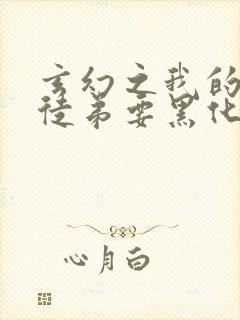 玄幻之我的
徒弟要黑化
心月白